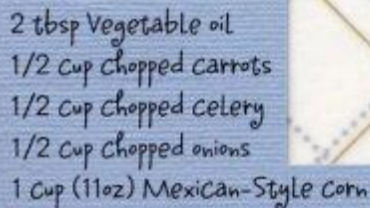 2 tbsp Vegetable oil
1/2 Cup Chopped Carrots
1/2 Cup Chopped Celery
1/2 Cup Chopped onions
1 Cup (11oz) Mexican-Style Corn